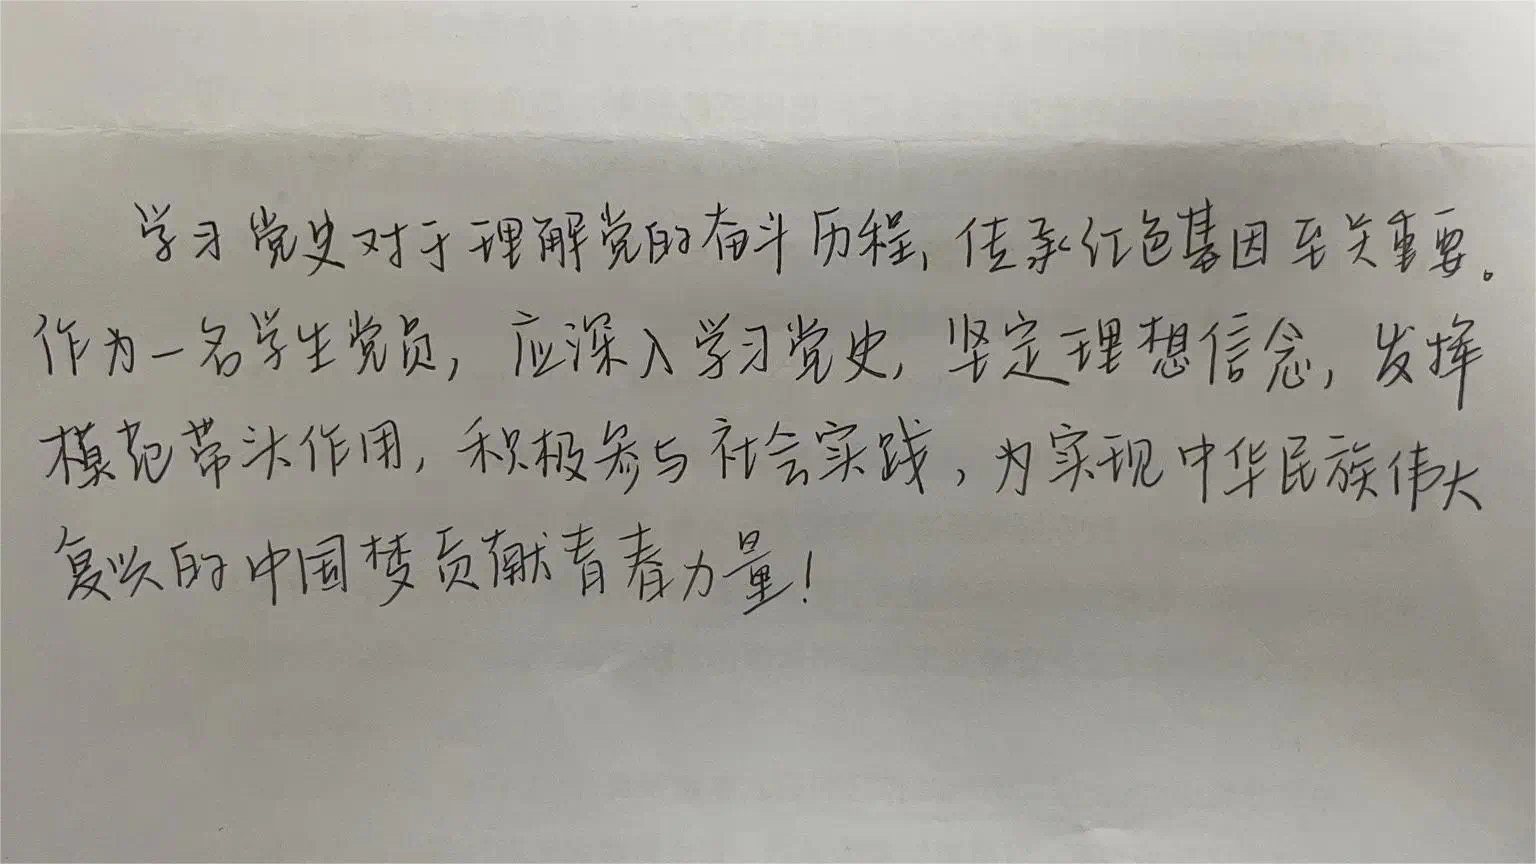 学习党史对于理解党的奋斗历程,传承红色基因至关重要。
作为一名学生党员,应深入学习党史,坚定理想信念,发挥
模范带头作用,积极参与社会实践,为实现中华民族伟大
复兴的中国梦贡献青春力量!